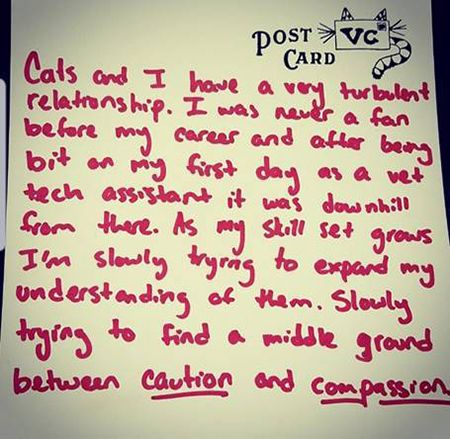 POST CARD
VC
Cats and I have a very turbulent
relationship. I was never a fan
before my career and after being
bit on my first day as a vet
tech assistant it was downhill
from there. As my skill set grows
I'm slowly trying to expand my
understanding of them. Slowly
trying to find a middle ground
between caution and compassion